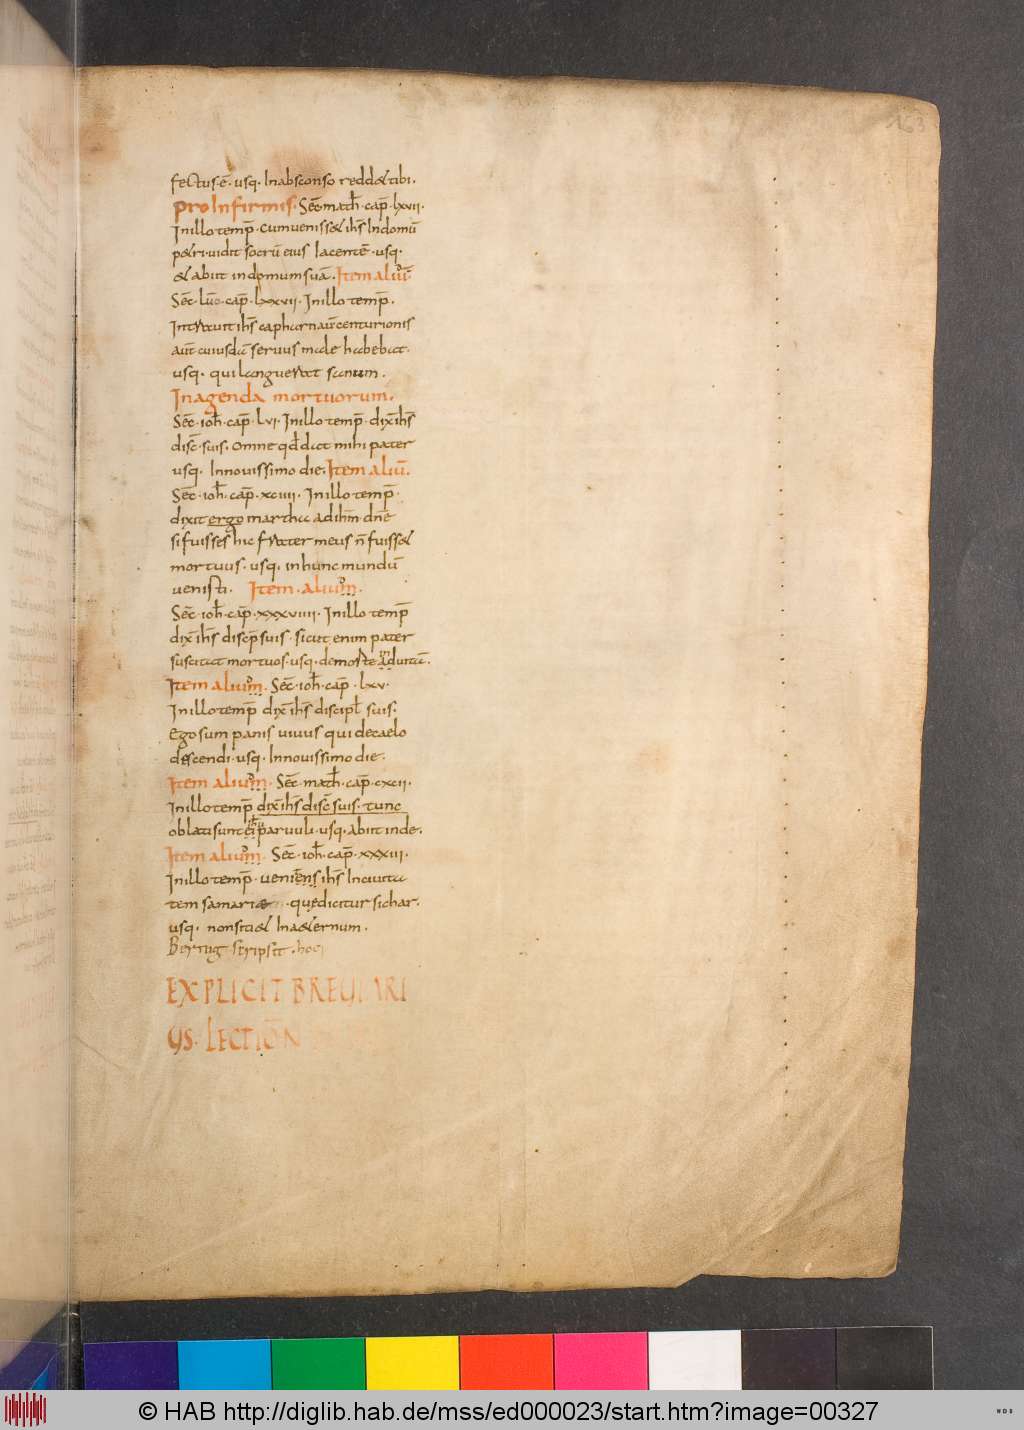 163
fectus ē· usq· In absconso reddet tibi.
pro Infirmis· Sec̄ math̄· cap̄· lxvii·
In illo temp̄· cum uenisset ih̄s In domū
petri· uidit socrū eius Iacentē· usq·
et abiit in domum suā. Item aliū·
Sec̄· luc̄· cap̄· lxxvii· In illo temp̄.
Intrauit ih̄s capharnaū centurionis
aut̄ cuiusdā seruus male habebat·
usq· qui languerat sanum.
In agenda mortuorum.
Sec̄· ioh̄· cap̄· Lvi· In illo temp̄· dix̄ ih̄s
disc̄· suis. omne qd̄ dat mihi pater
usq· In nouissimo die. Item aliū.
Sec̄· ioh̄· cap̄· xciiii· In illo temp̄·
dixit ergo martha ad ih̄m dn̄e
si fuisses hic frater meus n̄ fuisset
mortuus· usq· in hunc mundū
uenisti. Item· alium·
Sec̄· ioh̄· cap̄· xxxviiii· In illo temp̄
dix̄ ih̄s discip̄ suis· sicut enim pater
suscitat mortuos· usq· de morte ad uitā.
Item alium. Sec̄· ioh̄· cap̄· lxv·
In illo temp̄ dix̄ ih̄s discipl̄ suis.
Ego sum panis uiuus qui de caelo
descendi· usq· In nouissimo die.
Item alium. Sec̄· math̄· cap̄· cxcii·
In illo temp̄ dix̄ ih̄s disc̄ suis· tunc
oblati sunt ei paruuli· usq· abiit inde.
Item alium. Sec̄· ioh̄· cap̄· xxxiii·
In illo temp̄· ueniens ih̄s In ciuita
tem samariae· quę dicitur sichar·
usq· non sitiet In aeternum.
scripsit · hoc
EXPLICIT BREUIARI
US· LECTIŌN
© HAB http://diglib.hab.de/mss/ed000023/start.htm?image=00327
WDB